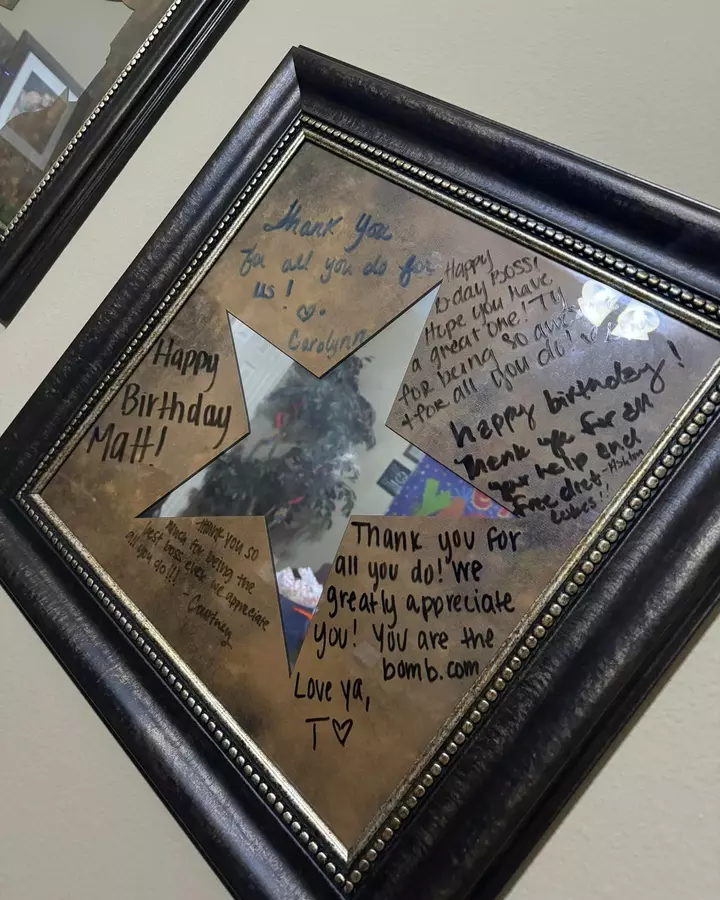 Thank You
for all you do for
us!
Carolynn
Happy
Bday BOSS!
Hope you have
a great one! TY
for being so
+ for all you do!
Happy
Birthday
Matt!
happy birthday!
Thank you for all
your help and
free diet
cubes!!
Thank you so
much for being the
best boss ever we appreciate
all you do!!!
- Courtney
Thank you for
all you do! We
greatly appreciate
you! You are the
bomb.com
Love ya,
T♡